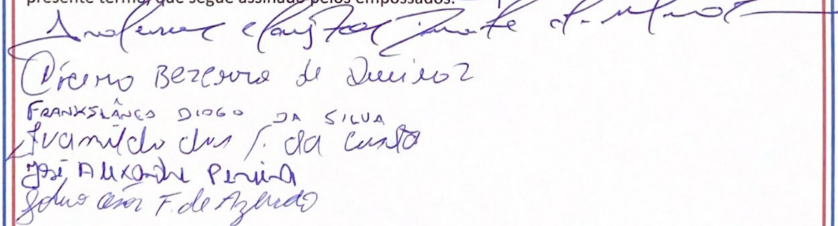 presente termo, que segue assinado pelos empossados.
Cícero Bezerra de Queiroz
FRANKSLÂNEO DIOGO DA SILVA
Ivanildo dos S. da Costa
José Alexandre Pereira
F. de Azevedo